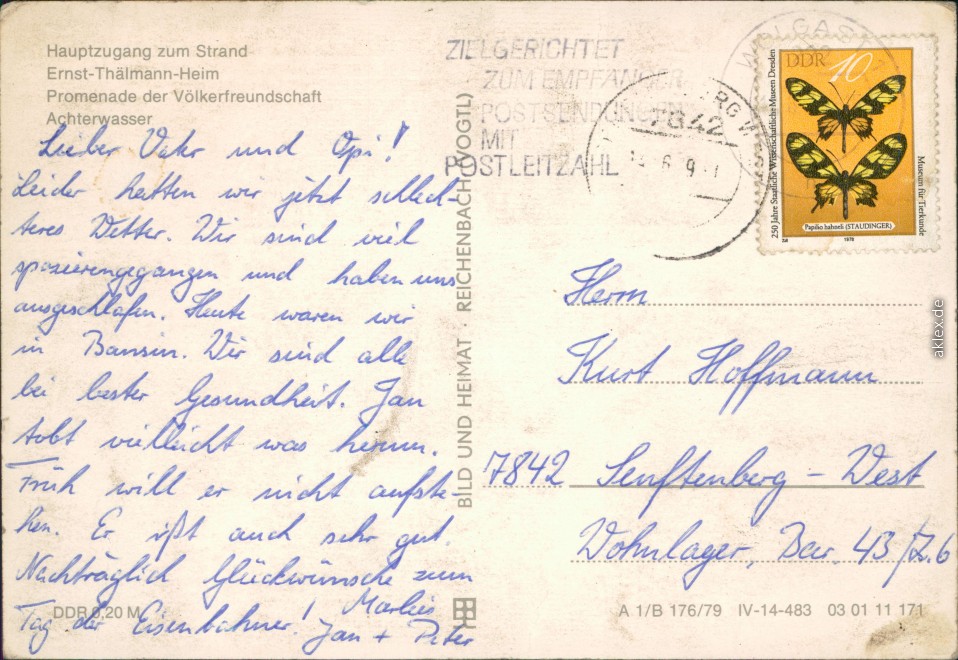 Hauptzugang zum Strand
Ernst-Thälmann-Heim
Promenade der Völkerfreundschaft
Achterwasser
Lieber Vater und Opi!
Leider hatten wir jetzt schlech-
teres Wetter. Wir sind viel
spazierengegangen und haben uns
ausgeschlafen. Heute waren wir
in Bansin. Wir sind alle
bei bester Gesundheit. Jan
tobt vielleicht was herum.
Früh will er nicht aufste-
hen. Er ißt auch sehr gut.
Nachträglich Glückwünsche zum
Tag der Eisenbahner! Marlies
Jan + Peter
DDR 0,20 M
BILD UND HEIMAT · REICHENBACH (VOGTL)
ZIELGERICHTET
ZUM EMPFÄNGER
POSTSENDUNGEN
MIT
POSTLEITZAHL
WOLGAST
7842
DDR 10
250 Jahre Staatliche Wissenschaftliche Museen Dresden
Museum für Tierkunde
Papilio hahneli (STAUDINGER)
1978
Herrn
Kurt Hoffmann
7842 Senftenberg - West
Wohnlager, Bar. 43/Z.6
A 1/B 176/79 IV-14-483 03 01 11 171
aklex.de